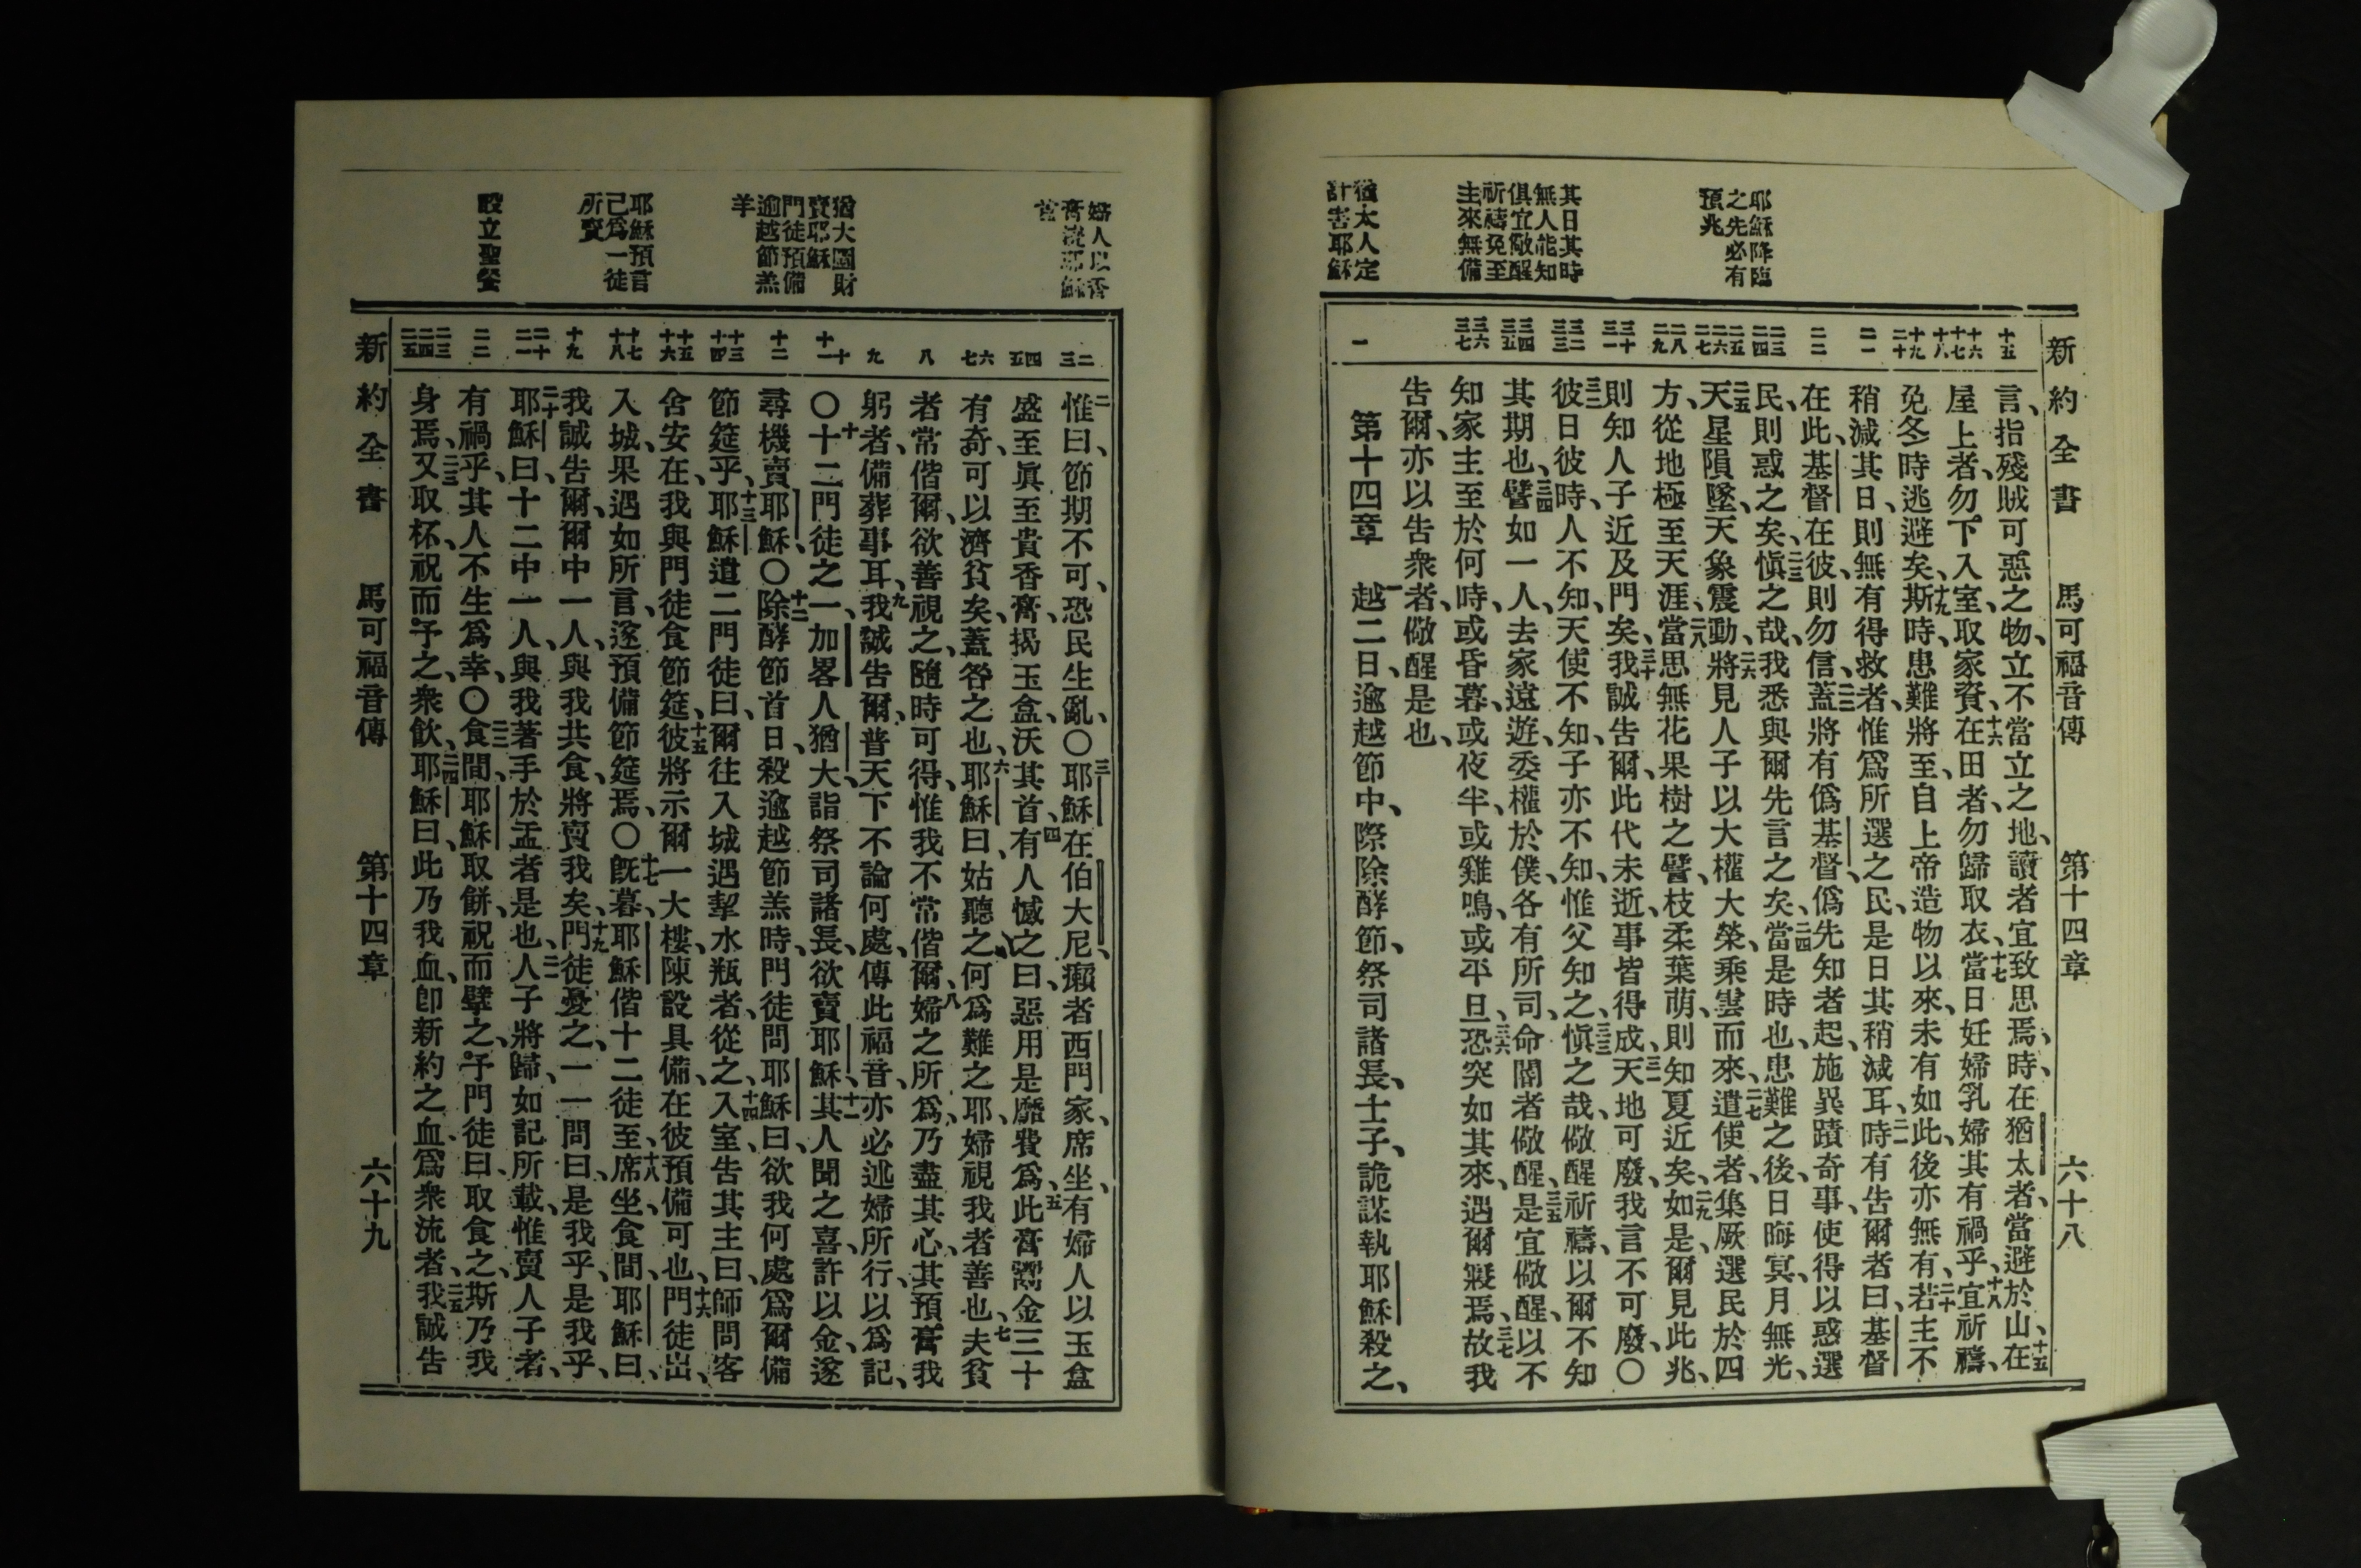 新約全書 馬可福音傳 第十四章 六十八
耶穌降臨
之先必有
預兆
其日其時
無人能知
俱宜儆醒
祈禱免至
主來無備
猶太人定
計害耶穌
十五
十六
十七
十八
十九
二十
二一
二二
二三
二四
二五
二六
二七
二八
二九
三十
三一
三二
三三
三四
三五
三六
三七
一
言、指殘賊可惡之物、立不當立之地、讀者宜致思焉、時、在猶太者、當避於山、十五在
屋上者、勿下入室、取家資、十六在田者、勿歸取衣、十七當日妊婦乳婦其有禍乎、十八宜祈禱、
免冬時逃避矣、十九斯時、患難將至、自上帝造物以來、未有如此、後亦無有、二十若主不
稍減其日、則無有得救者、惟爲所選之民、是日其稍減耳、二一時有告爾者曰、基督
在此、基督在彼、則勿信、二二蓋將有僞基督、僞先知者起、施異蹟奇事、使得以惑選
民、則惑之矣、二三愼之哉、我悉與爾先言之矣、二四當是時也、患難之後、日晦冥、月無光、
二五天星隕墜、天象震動、二六將見人子以大權大榮、乘雲而來、二七遣使者、集厥選民於四
方、從地極至天涯、二八當思無花果樹之譬、枝柔葉萌、則知夏近矣、二九如是、爾見此兆、
則知人子近及門矣、三十我誠告爾、此代未逝、事皆得成、三一天地可廢、我言不可廢、〇
三二彼日彼時、人不知、天使不知、子亦不知、惟父知之、三三愼之哉、儆醒祈禱、以爾不知
其期也、三四譬如一人、去家遠遊、委權於僕、各有所司、命閽者儆醒、三五是宜儆醒、以不
知家主至於何時、或昏暮、或夜半、或雞鳴、或平旦、三六恐突如其來、遇爾寢焉、三七故我
告爾、亦以告衆者、儆醒是也、
第十四章 一越二日、逾越節中、際除酵節、祭司諸長、士子、詭謀執耶穌殺之、
婦人以香
膏澆耶穌
首
猶大圖財
賣耶穌
門徒預備
逾越節羔
羊
耶穌預言
己爲一徒
所賣
設立聖餐
二
三
四
五
六
七
八
九
十
十一
十二
十三
十四
十五
十六
十七
十八
十九
二十
二一
二二
二三
二四
二五
二惟曰、節期不可、恐民生亂、〇三耶穌在伯大尼、癩者西門家、席坐、有婦人以玉盒
盛至眞至貴香膏、揭玉盒、沃其首、四有人憾之曰、惡用是靡費爲、五此膏鬻金三十
有奇、可以濟貧矣、蓋咎之也、六耶穌曰、姑聽之、何爲難之耶、婦視我者善也、七夫貧
者、常偕爾、欲善視之、隨時可得、惟我不常偕爾、八婦之所爲、乃盡其心、其預膏我
躬者、備葬事耳、九我誠告爾、普天下不論何處、傳此福音、亦必述婦所行、以爲記、
〇十十二門徒之一、加畧人猶大、詣祭司諸長、欲賣耶穌、十一其人聞之喜、許以金、遂
尋機賣耶穌、〇十二除酵節首日、殺逾越節羔時、門徒問耶穌曰、欲我何處爲爾備
節筵乎、十三耶穌遣二門徒曰、爾往入城、遇挈水瓶者、從之、十四入室、告其主曰、師問客
舍安在、我與門徒食節筵、十五彼將示爾一大樓、陳設具備、在彼預備可也、十六門徒出、
入城、果遇如所言、遂預備節筵焉、〇十七旣暮、耶穌偕十二徒至、十八席坐食間、耶穌曰、
我誠告爾、爾中一人、與我共食、將賣我矣、十九門徒憂之、一一問曰、是我乎、是我乎、
二十耶穌曰、十二中一人、與我著手於盂者是也、二一人子將歸、如記所載、惟賣人子者、
有禍乎、其人不生爲幸、〇二二食間、耶穌取餅、祝而擘之、予門徒曰、取食之、斯乃我
身焉、二三又取杯、祝而予之、衆飲、二四耶穌曰、此乃我血、卽新約之血、爲衆流者、二五我誠告
新約全書 馬可福音傳 第十四章 六十九